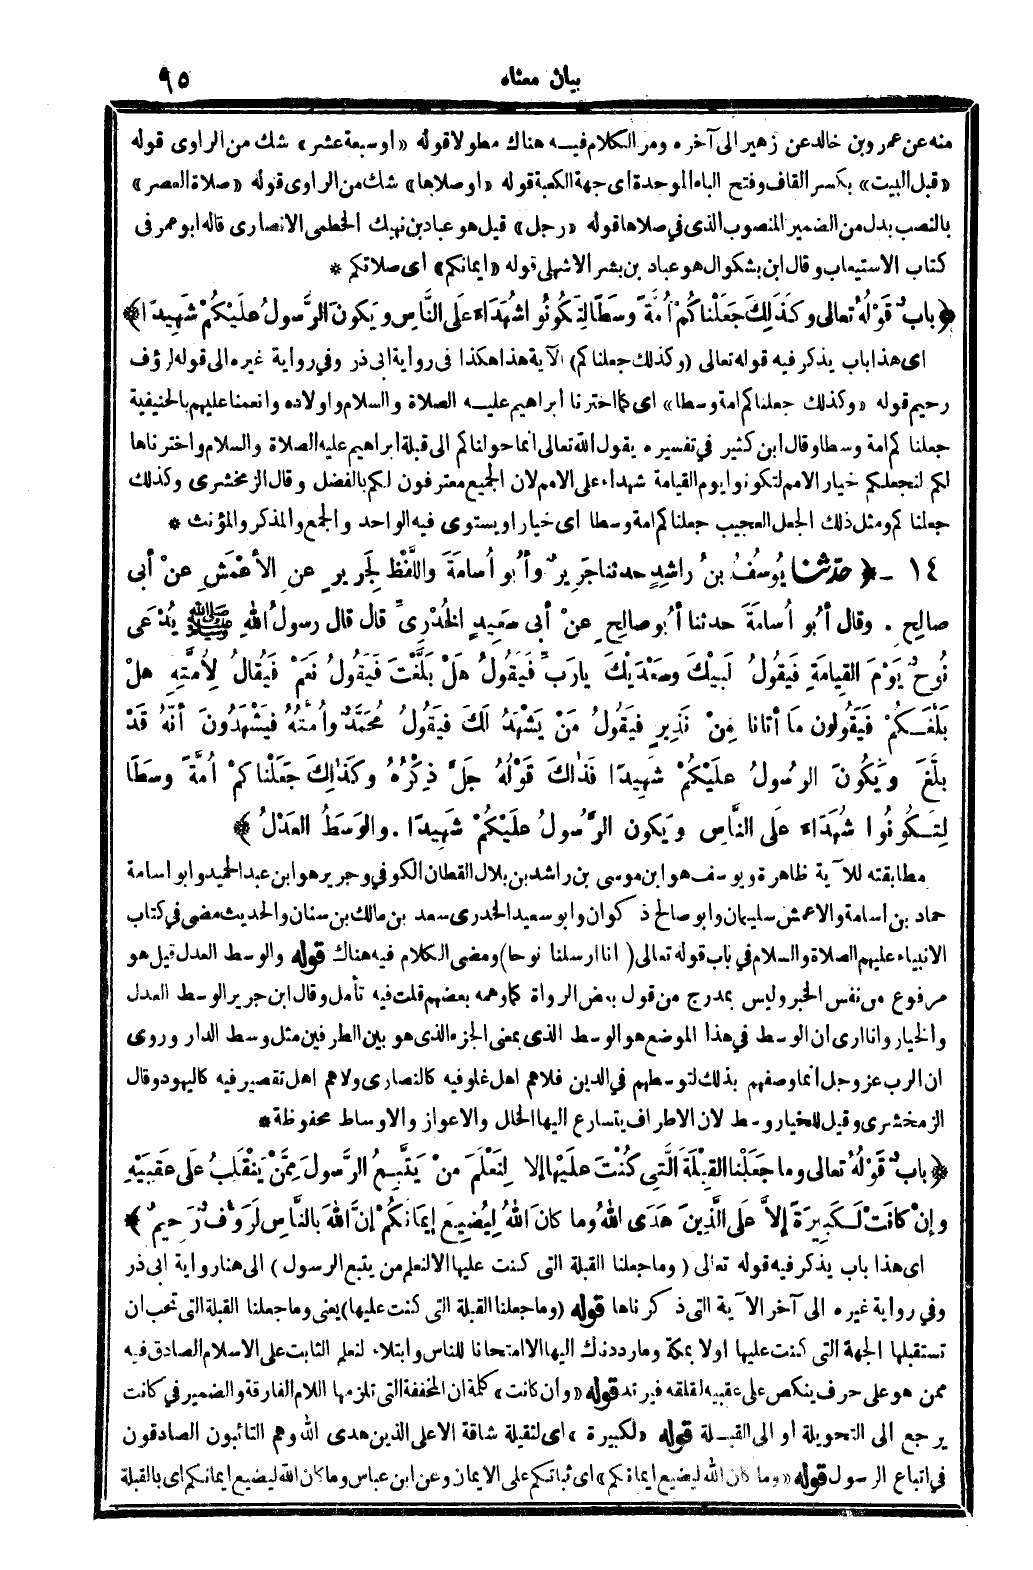 بيان معناه ٩٥
منه عن عمرو بن خالد عن زهير الى آخره ومر الكلام فيه هناك مطولا قوله «او سبعة عشر» شك من الراوى قوله
«قبل البيت» بكسر القاف وفتح الباء الموحدة اى جهة الكعبة قوله «او صلاها» شك من الراوى قوله «صلاة العصر»
بالنصب بدل من الضمير المنصوب الذى في صلاها قوله «رجل» قيل هو عباد بن نهيك الخطمى الانصارى قاله ابو عمر فى
كتاب الاستيعاب وقال ابن بشكوال هو عباد بن بشر الاشهلى قوله «ايمانكم» اى صلاتكم *
﴿ بابُ قَوْلُهُ تعالى وكَذَلِكَ جَعَلْناكُمْ أُمَّةً وسَطًا لِتَكُونُوا شُهَدَاءَ عَلَى النَّاسِ ويَكونَ الرَّسولُ عَلَيْكُمْ شَهِيدًا ﴾
اى هذا باب يذكر فيه قوله تعالى (وكذلك جعلناكم) الآية هذا هكذا فى رواية ابى ذر وفي رواية غيره الى قوله لرؤف
رحيم قوله «وكذلك جعلناكم امة وسطا» اى كما اخترنا ابراهيم عليه الصلاة والسلام واولاده وانعمنا عليهم بالحنيفية
جعلنا كم امة وسطا وقال ابن كثير في تفسيره يقول الله تعالى انما حولناكم الى قبلة ابراهيم عليه الصلاة والسلام واخترناها
لكم لنجعلكم خيار الامم لتكونوا يوم القيامة شهداء على الامم لان الجميع معترفون لكم بالفضل وقال الزمخشرى وكذلك
جعلنا كم ومثل ذلك الجعل العجيب جعلناكم امة وسطا اى خيارا ويستوى فيه الواحد والجمع والمذكر والمؤنث *
١٤ - ﴿ حدثنا يُوسُفُ بنُ راشِدٍ حدثنا جَرِيرٌ وأبُو أُسامَةَ واللَّفْظُ لِجَرِيرٍ عنِ الأعْمَشِ عنْ أبى
صالِحٍ . وقال أبُو أُسامَةَ حدثنا أبُو صالِحٍ عنْ أبى سَعِيدٍ الخُدْرِىِّ قال قال رسولُ اللهِ ﷺ يُدْعَى
نُوحٌ يَوْمَ القِيامَةِ فَيقُولُ لَبيْكَ وسَعْدَيْكَ يارَبِّ فَيَقُولُ هَلْ بَلَّغْتَ فَيَقُولُ نَعَمْ فَيُقالُ لِأُمَّتِهِ هلْ
بَلَّغَكُمْ فَيَقُولون مَا أتانا مِنْ نَذِيرٍ فيَقُولُ مَنْ يَشْهَدُ لَكَ فيَقُولُ مُحَمَّدٌ وأُمَّتُهُ فيَشْهَدُونَ أنَّهُ قَدْ
بلَّغَ ويَكُونَ الرسُولُ علَيْكُمْ شَهِيدًا فَذَلِكَ قَوْلُهُ جَلَّ ذِكْرُهُ وكَذَلِكَ جَعَلْناكمْ أُمَّةً وسَطًا
لِتَكُونُوا شُهَدَاءَ عَلَى النَّاسِ ويَكون الرَّسُولُ علَيْكُمْ شَهِيدًا .والوَسَطُ العَدْلُ ﴾
مطابقته للآية ظاهرة ويوسف هو ابن موسى بن راشد بن بلال القطان الكوفي وجرير هو ابن عبد الحميد وابو اسامة
حماد بن اسامة والاعمش سليمان وابو صالح ذكوان وابو سعيد الخدرى سعد بن مالك بن سنان والحديث مضى في كتاب
الانبياء عليهم الصلاة والسلام في باب قوله تعالى ( انا ارسلنا نوحا) ومضى الكلام فيه هناك قوله والوسط العدل قيل هو
مرفوع من نفس الخبر وليس بمدرج من قول بعض الرواة كما وهمه بعضهم قلت فيه تأمل وقال ابن جرير الوسط العدل
والخيار وانا ارى ان الوسط في هذا الموضع هو الوسط الذى بمعنى الجزء الذى هو بين الطرفين مثل وسط الدار وروى
ان الرب عز وجل انما وصفهم بذلك لتوسطهم في الدين فلا هم اهل غلو فيه كالنصارى ولا هم اهل تقصير فيه كاليهود وقال
الزمخشرى وقيل للخيار وسط لان الاطراف يتسارع اليها الخلل والاعواز والاوساط محفوظة *
﴿ بابُ قَوْلُهُ تعالى وما جَعَلْنا القِبْلَةَ الَّتِى كُنْتَ علَيْها إلا لِنَعْلَمَ منْ يَتَّبِعُ الرَّسولَ مِمَّنْ يَنْقَلِبُ عَلَى عَقِبَيْهِ
وإنْ كانَتْ لَكَبِيرَةً إلاَّ عَلَى الَّذِينَ هَدَى اللهُ وما كانَ اللهُ لِيُضِيعَ إيمَانَكُمْ إنَّ اللهَ بالنَّاسِ لَرَؤُفٌ رَحِيمٌ ﴾
اى هذا باب يذكر فيه قوله تعالى ( وما جعلنا القبلة التى كنت عليها الا لنعلم من يتبع الرسول ) الى هنا رواية ابى ذر
وفي رواية غيره الى آخر الآية التى ذكرناها قوله (وما جعلنا القبلة التى كنت عليها) يعنى وما جعلنا القبلة التى تحب ان
تستقبلها الجهة التى كنت عليها اولا بمكة وما رددناك اليها الا امتحانا للناس وابتلاء لنعلم الثابت على الاسلام الصادق فيه
ممن هو على حرف ينكص على عقبيه لقلقه فيرتد قوله «وان كانت» كلمة ان المخففة التى تلزمها اللام الفارقة والضمير في كانت
يرجع الى التحويلة أو الى القبلة قوله «لكبيرة» اى لثقيلة شاقة الا على الذين هدى الله وهم التائبون الصادقون
في اتباع الرسول قوله «وما كان الله ليضيع ايمانكم» اى ثباتكم على الايمان وعن ابن عباس وما كان الله ليضيع ايمانكم اى بالقبلة